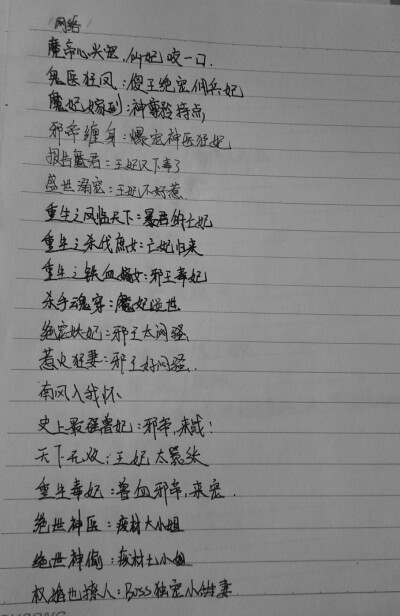 网络
魔帝心尖宠,仙妃咬一口.
鬼医狂凤:傻王绝宠佣兵妃
魔妃嫁到:神尊矜持点
邪帝缠身:爆宠神医狂妃
报告魔君:王妃又下毒了
盛世溺宠:王妃不好惹.
重生之凤临天下:暴君的亡妃
重生之杀伐庶女:亡妃归来
重生之铁血嫡女:邪王毒妃
杀手魂穿:魔妃倾世
绝宠妖妃:邪王太闷骚
惹火狂妻:邪王好闷骚.
南风入我怀
史上最强兽妃:邪帝,来战!
天下无双:王妃太嚣张
重生毒妃:兽血邪帝,来宠.
绝世神医:废材大小姐
绝世神偷:废材七小姐
权婚也撩人:Boss独宠小娇妻